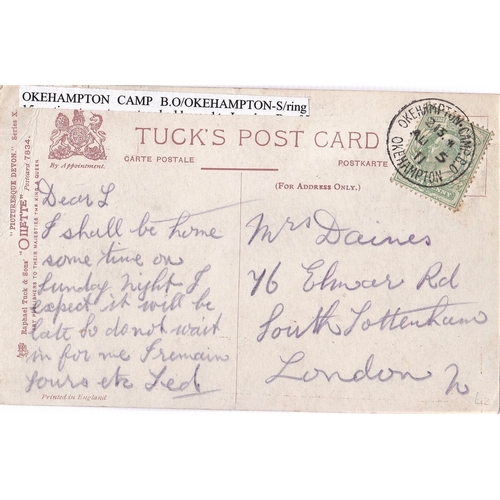 OKEHAMPTON CAMP B.O/OKEHAMPTON-S/ring
By Appointment.
TUCK'S POST CARD
CARTE POSTALE
POSTKARTE
(FOR ADDRESS ONLY.)
"PICTURESQUE DEVON." Series X.
Raphael Tuck & Sons' "OILETTE" Postcard 7834.
ART PUBLISHERS TO THEIR MAJESTIES THE KING & QUEEN
OKEHAMPTON CAMP B.O.
AU 5
11
OKEHAMPTON
Dear L
I shall be home
some time on
Sunday night I
expect it will be
late So do not wait
in for me I remain
yours etc Ted
Printed in England.
Mrs Daines
76 Elmar Rd
South Tottenham
London N